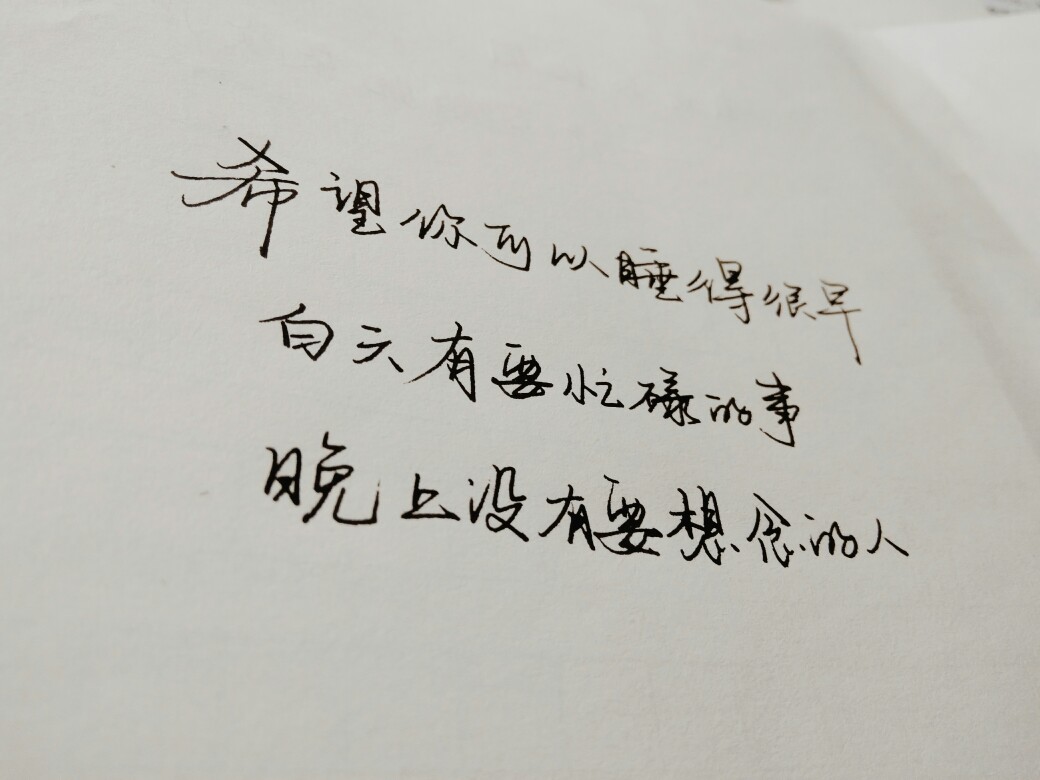 希望你可以睡得很早
白天有要忙碌的事
晚上没有要想念的人